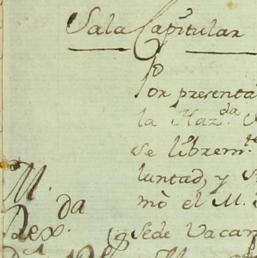 Sala Capitular
Por presenta
la Haz.da
se librem.te
luntad, y
mò el M.
M.
da
Rex.
Sede Vacan